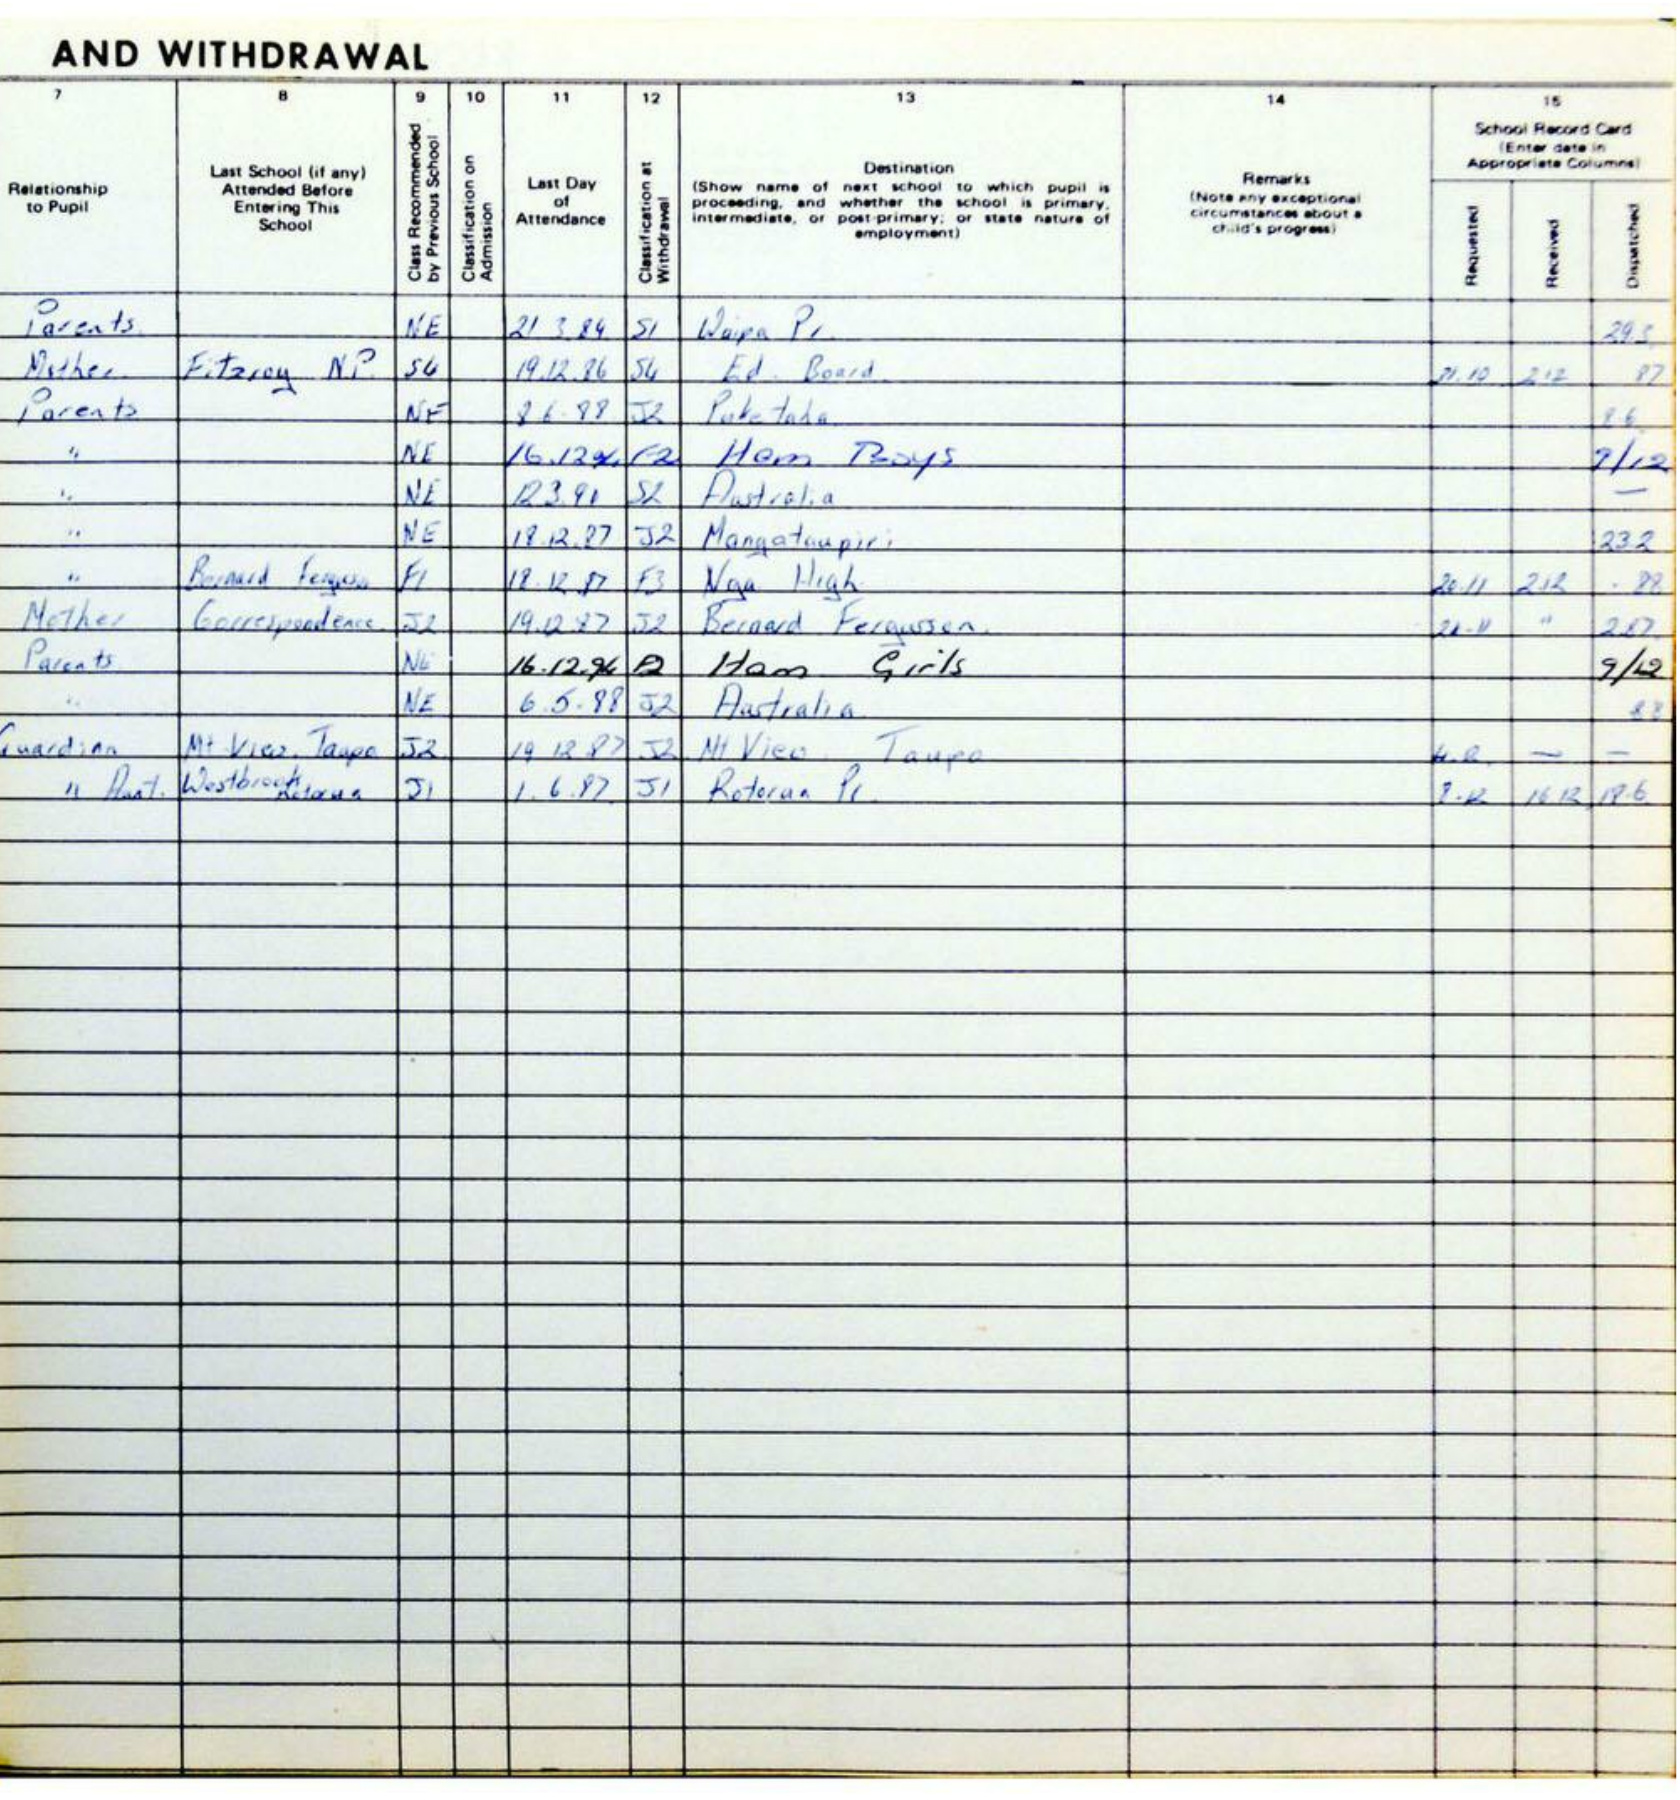 AND WITHDRAWAL
7 8 9 10 11 12 13 14 15
Relationship to Pupil
Last School (if any) Attended Before Entering This School
Class Recommended by Previous School
Classification on Admission
Last Day of Attendance
Classification at Withdrawal
Destination
(Show name of next school to which pupil is proceeding, and whether the school is primary, intermediate, or post-primary; or state nature of employment)
Remarks
(Note any exceptional circumstances about a child's progress)
School Record Card
(Enter date in Appropriate Columns)
Requested
Received
Dispatched
Parents NE 21 3 S1 Waipa Pr. 29.3
Mother Fitzroy N.P. S4 19.12.86 S4 Ed. Board 2.12 87
Parents NE 8 6 88 J2 8.6
" NE 16.12.94 F2 Ham Boys 9/12
" NE 12.3.91 S2 Australia —
" NE 18.12.87 J2 23.2
" Bernard F1 18.12.87 F3 Nga High 20.11 2.12 88
Mother Correspondence J2 19.12.87 J2 Bernard Fergusson. "
Parents NE 16.12.94 F2 Ham Girls 9/12
" NE 6.5.88 J2 Australia 88
Guardian Mt View, Taupo J2 19 12 87 J2 Mt View Taupo — —
" Aunt. Westbrook Rotorua J1 1.6.87 J1 Rotorua Pr. 8.12 16 12 18.6